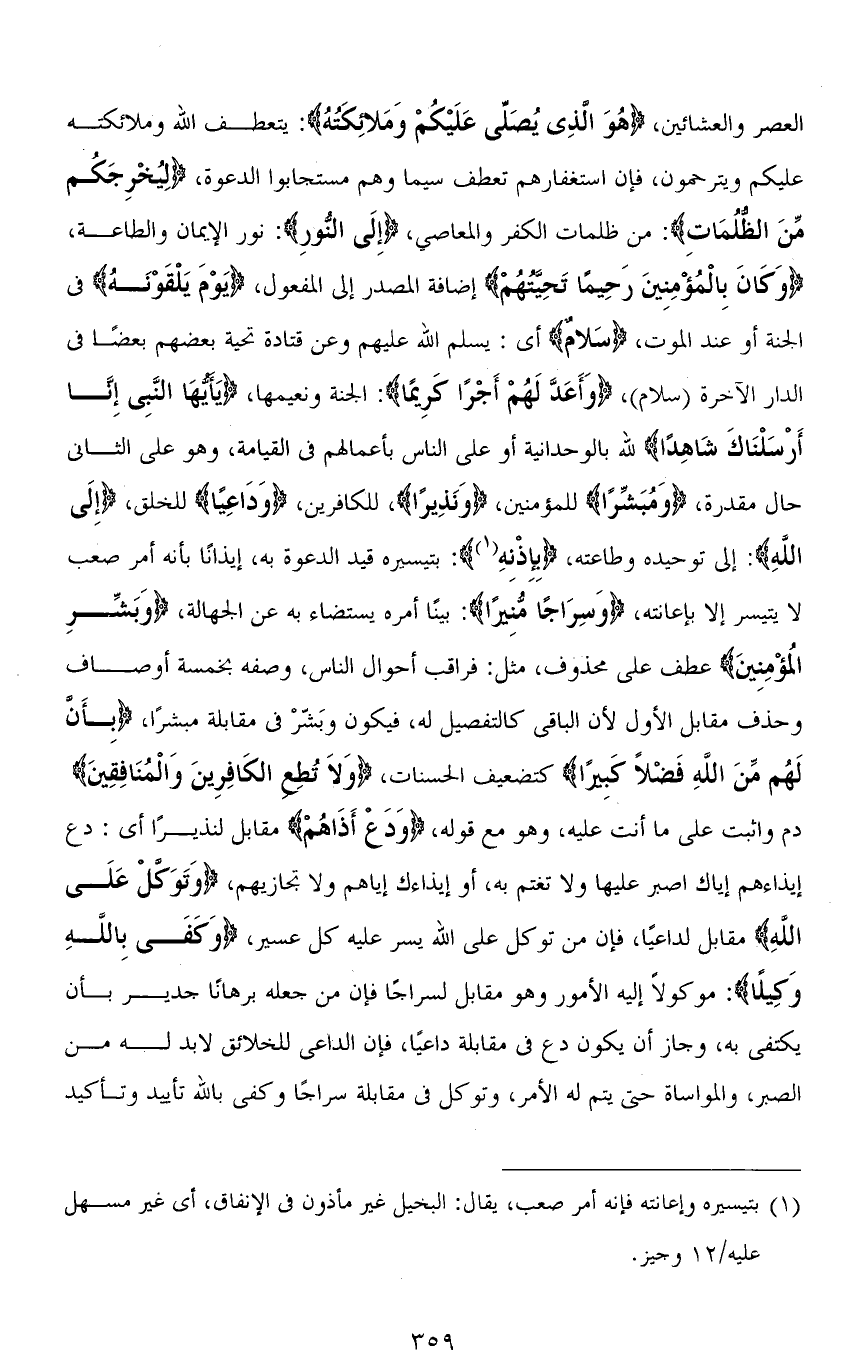 العصر والعشائين، ﴿هُوَ الَّذِى يُصَلِّى عَلَيْكُمْ وَمَلائِكَتُهُ﴾: يتعطـف الله وملائكتـه
عليكم ويترحمون، فإن استغفارهم تعطف سيما وهم مستجابوا الدعوة، ﴿لِيُخْرِجَكُـم
مِّنَ الظُّلُمَاتِ﴾: من ظلمات الكفر والمعاصي، ﴿إِلَى النُّورِ﴾: نور الإيمان والطاعـة،
﴿وَكَانَ بِالْمُؤْمِنِينَ رَحِيمًا تَحِيَّتُهُمْ﴾ إضافة المصدر إلى المفعول، ﴿يَوْمَ يَلْقَوْنَـهُ﴾ فى
الجنة أو عند الموت، ﴿سَلامٌ﴾ أى : يسلم الله عليهم وعن قتادة تحية بعضهم بعضًـا فى
الدار الآخرة (سلام)، ﴿وَأَعَدَّ لَهُمْ أَجْرًا كَرِيمًا﴾: الجنة ونعيمها، ﴿يَأَيُّهَا النَّبِى إِنَّـا
أَرْسَلْنَاكَ شَاهِدًا﴾ لله بالوحدانية أو على الناس بأعمالهم فى القيامة، وهو على الثـانى
حال مقدرة، ﴿وَمُبَشِّرًا﴾ للمؤمنين، ﴿وَنَذِيرًا﴾، للكافرين، ﴿وَدَاعِيًا﴾ للخلق، ﴿إِلَى
اللَّهِ﴾: إلى توحيده وطاعته، ﴿بِإِذْنِهِ(١)﴾: بتيسيره قيد الدعوة به، إيذانًا بأنه أمر صعب
لا يتيسر إلا بإعانته، ﴿وَسِرَاجًا مُّنِيرًا﴾: بينًا أمره يستضاء به عن الجهالة، ﴿وَبَشِّـرِ
الْمُؤْمِنِينَ﴾ عطف على محذوف، مثل: فراقب أحوال الناس، وصفه بخمسة أوصـاف
وحذف مقابل الأول لأن الباقى كالتفصيل له، فيكون وبَشّرْ فى مقابلة مبشرًا، ﴿بِـأَنَّ
لَهُم مِّنَ اللَّهِ فَضْلاً كَبِيرًا﴾ كتضعيف الحسنات، ﴿وَلاَ تُطِعِ الكَافِرِينَ وَالْمُنَافِقِينَ﴾
دم واثبت على ما أنت عليه، وهو مع قوله، ﴿وَدَعْ أَذَاهُمْ﴾ مقابل لنذيـرًا أى : دع
إيذاءهم إياك اصبر عليها ولا تغتم به، أو إيذاءك إياهم ولا تجازيهم، ﴿وَتَوَكَّلْ عَلَـى
اللَّهِ﴾ مقابل لداعيًا، فإن من توكل على الله يسر عليه كل عسير، ﴿وَكَفَـى بِاللَّـهِ
وَكِيلًا﴾: موكولاً إليه الأمور وهو مقابل لسراجًا فإن من جعله برهانًا جديـر بـأن
يكتفى به، وجاز أن يكون دع فى مقابلة داعيًا، فإن الداعى للخلائق لابد لـه مـن
الصبر، والمواساة حتى يتم له الأمر، وتوكل فى مقابلة سراجًا وكفى بالله تأييد وتـأكيد
(١) بتيسيره وإعانته فإنه أمر صعب، يقال: البخيل غير مأذون فى الإنفاق، أى غير مسـهل
عليه/١٢ وجيز.
٣٥٩